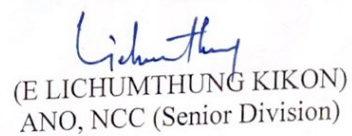 Lichumthung
(E LICHUMTHUNG KIKON)
ANO, NCC (Senior Division)